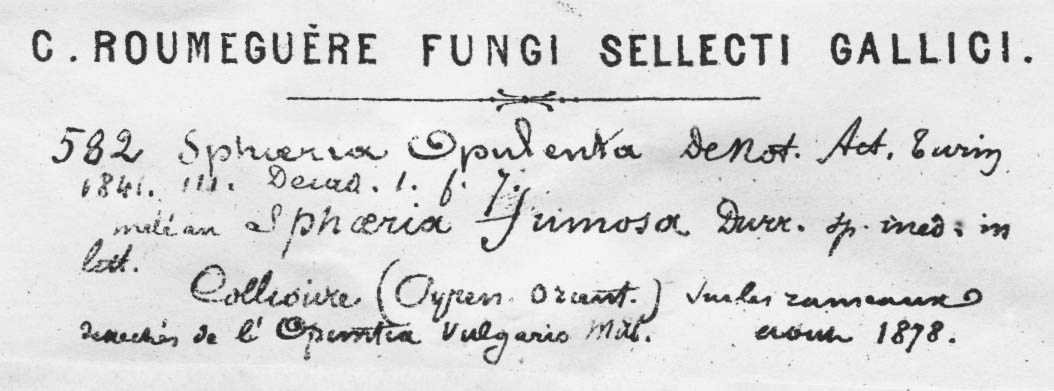 C. ROUMEGUÈRE FUNGI SELLECTI GALLICI.
582 Sphæria Opulenta DeNot. Act. Turin
1841. III. Decad. 1. f. 7.
mêlé au Sphæria fumosa Durr. sp. ined. in
litt.
Collioure (Pyren. Orient.) sur les rameaux
dessechés de l'Opuntia Vulgaris Mill. 1878.